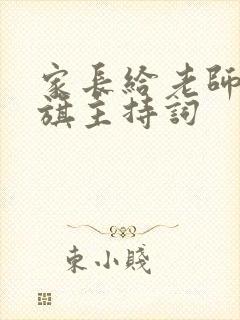 家長給老師
旗主持詞
束小賤